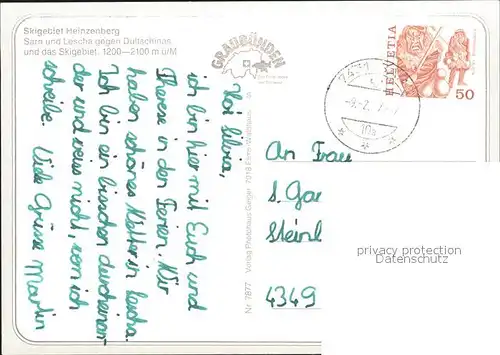 Skigebiet Heinzenberg
Sarn und Lescha gegen Dultschinas
und das Skigebiet. 1200—2100 m ü/M
GRAUBÜNDEN
HELVETIA
50
Hoi Silvia,
ich bin hier mit Euch und
Therese in den Ferien. Wir
haben schönes Wetter in Lescha.
Ich bin ein bisschen durcheinan-
der und weiss nicht, wem ich
schreibe. Viele Grüsse Martin
Nr. 7877 Verlag Photohaus Geiger, 7018 Flims-Waldhaus
An Frau
S. Gar
Steinl
4349
privacy protection
Datenschutz